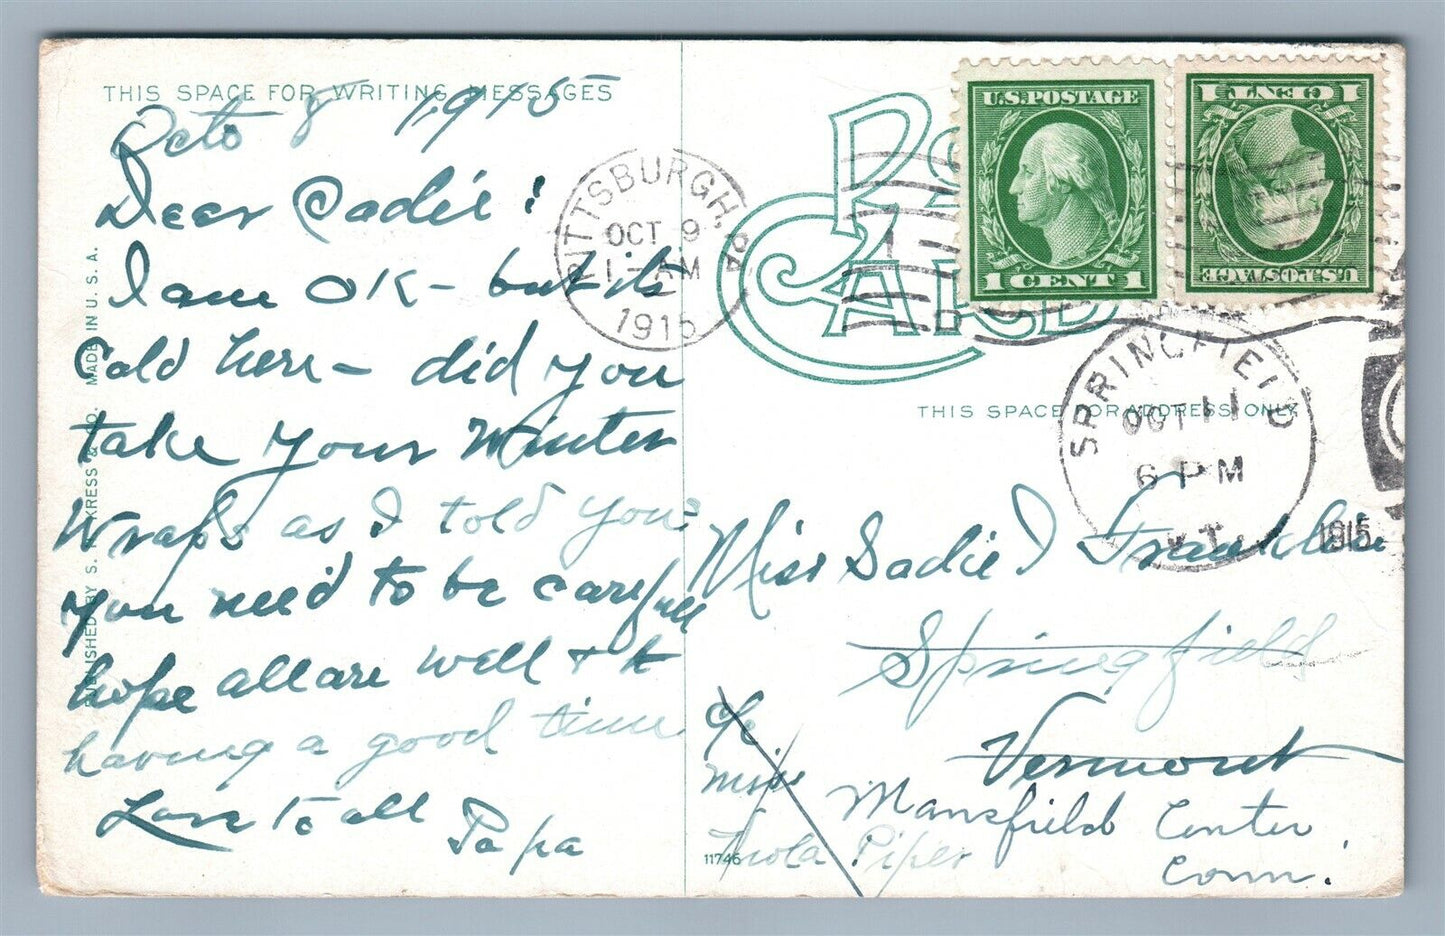 THIS SPACE FOR WRITING MESSAGES
Octo 8 1915
Dear Sadie:
I am OK - but its
Cold here - did you
take your Winter
Wraps as I told you:
you need to be careful
hope all are well & 
having a good time
Love to all
Papa
PUBLISHED BY S. H. KRESS & CO. MADE IN U. S. A.
PITTSBURGH, PA
OCT 9
1 - AM
1915
POST
CARD
U.S. POSTAGE
1 CENT 1
U.S. POSTAGE
1 CENT 1
SPRINGFIELD
OCT 11
6 PM
VT.
1915
THIS SPACE FOR ADDRESS ONLY.
Miss Sadie I Franklin
Springfield
Vermont
c/o
Miss
Viola Piper
Mansfield Center
Conn.
11746